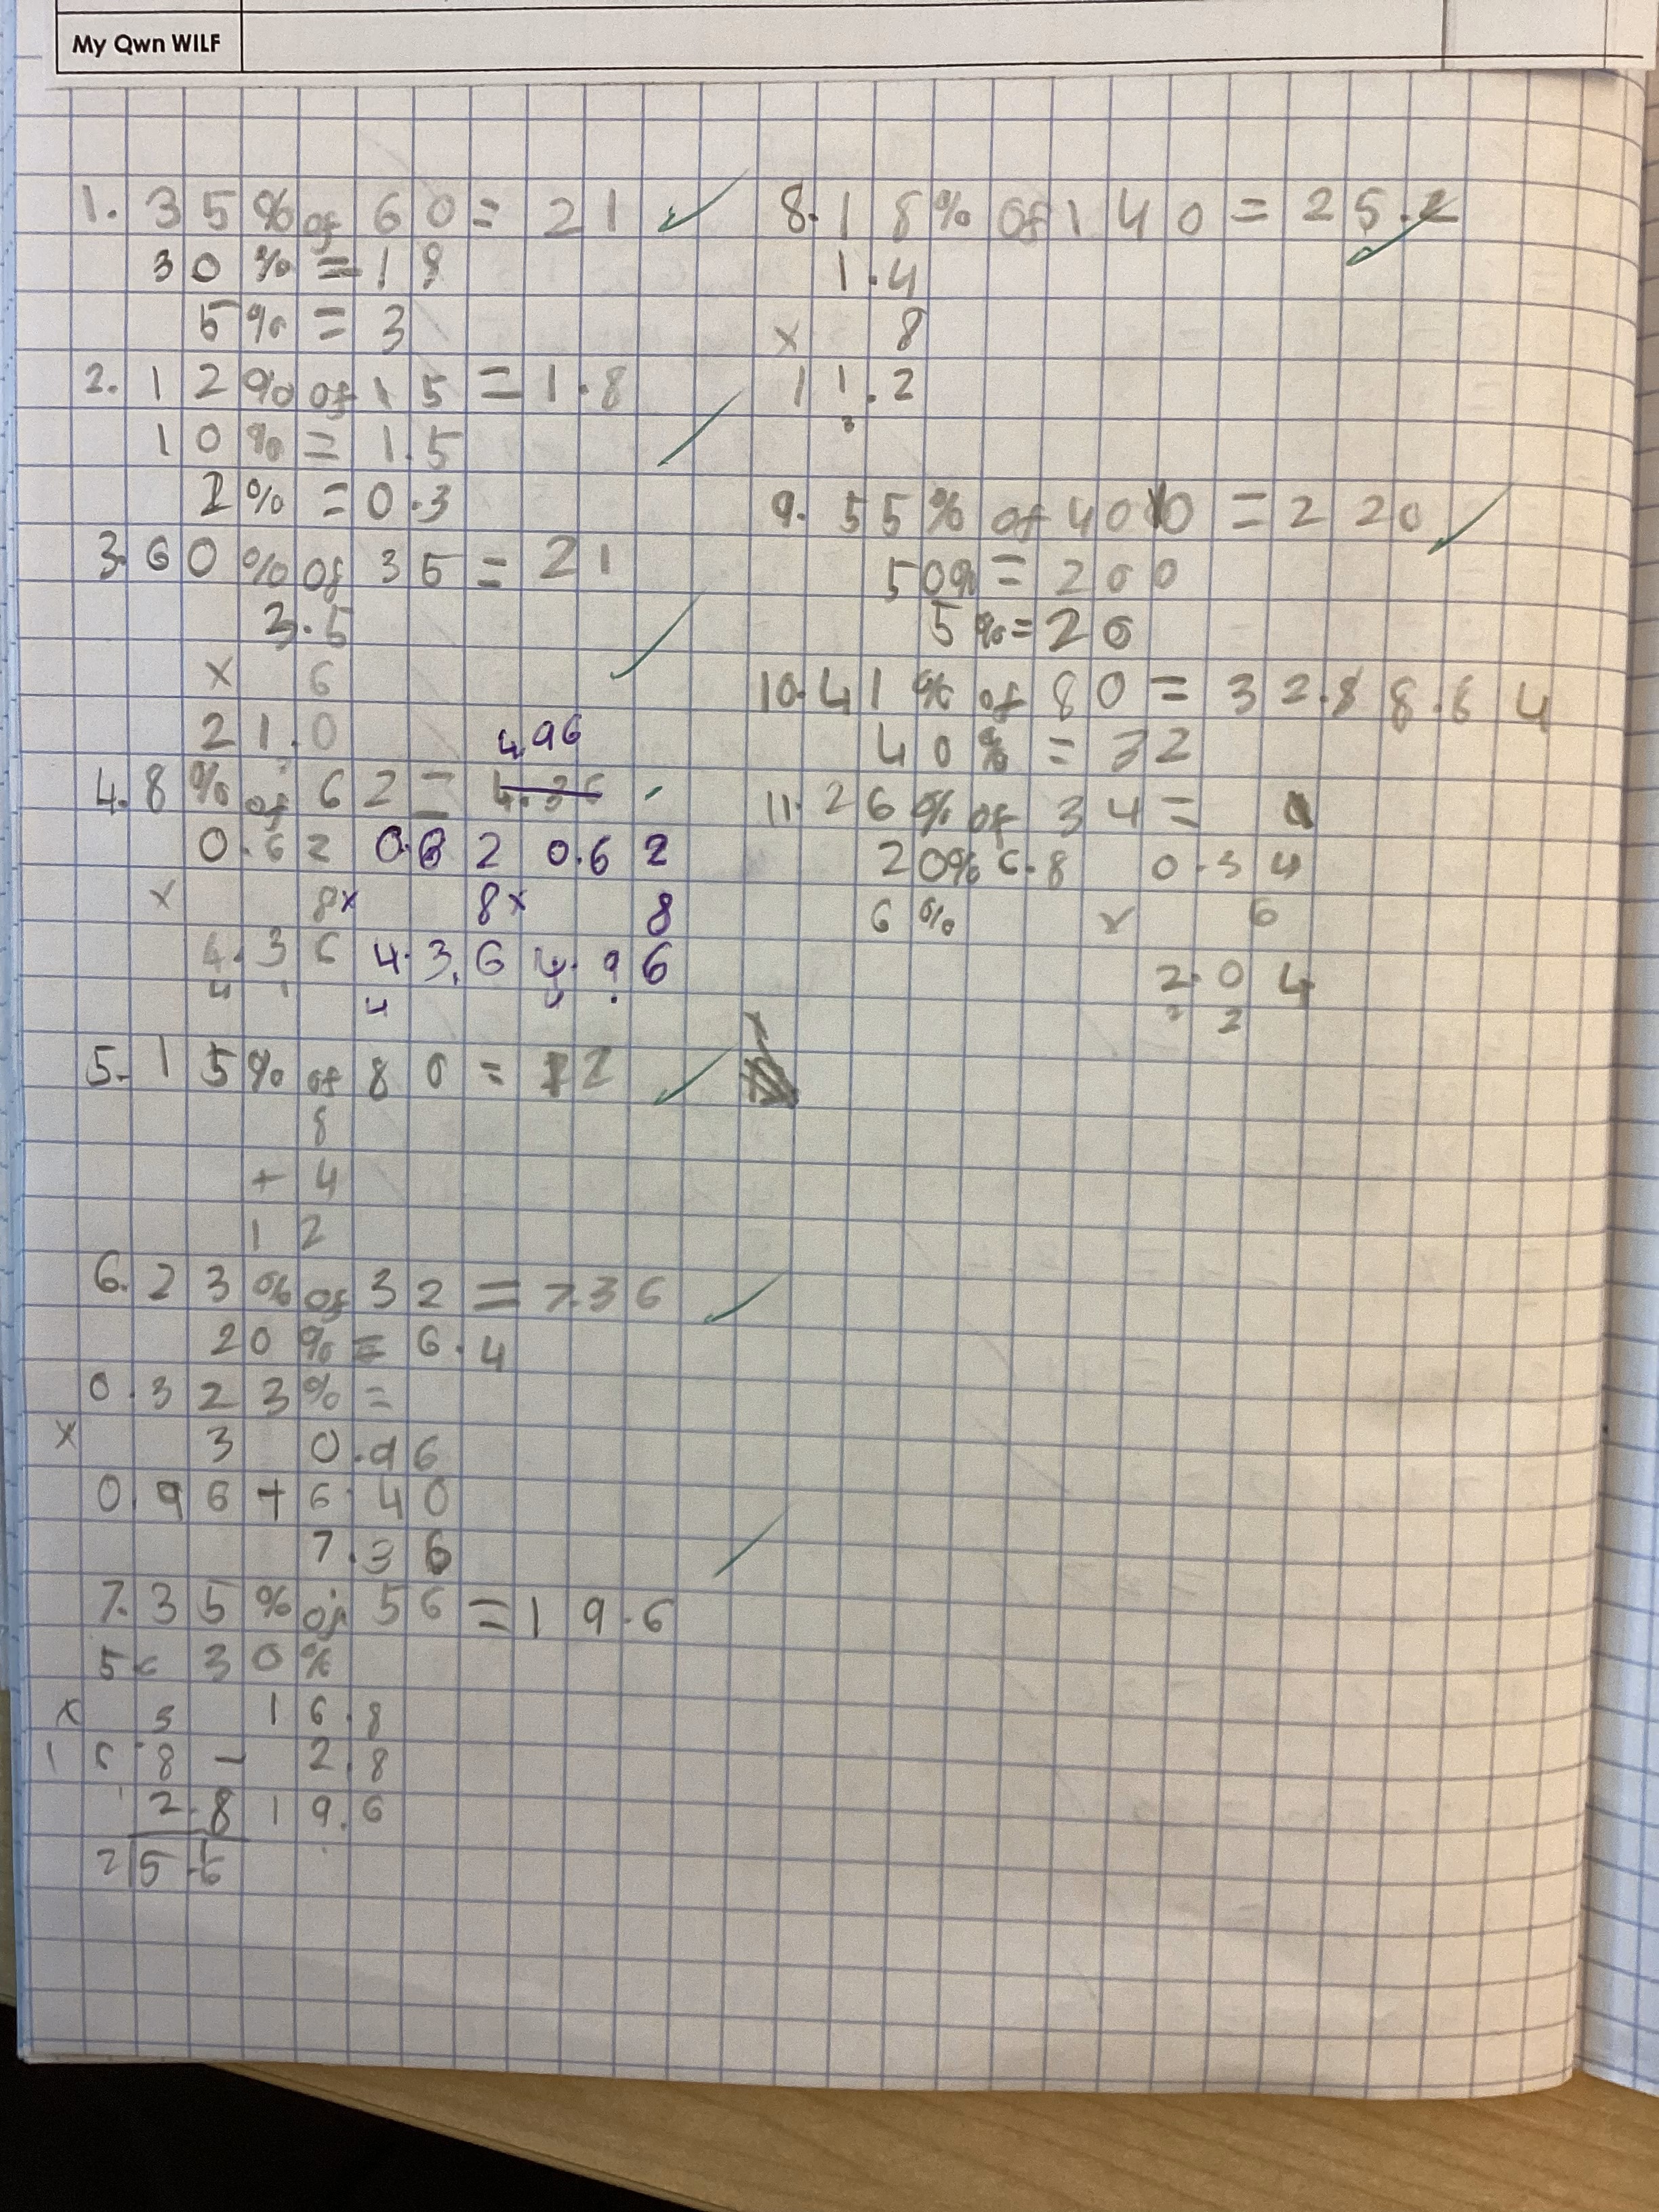 My Qwn WILF
1. 35% of 60 = 21
30% = 18
5% = 3
2. 12% of 15 = 1.8
10% = 1.5
2% = 0.3
3. 60% of 35 = 21
3.5
x 6
21.0
4.96
4. 8% of 62 = 4.36
0.62 0.62 0.62
x 8 x 8 x 8
4.36 4.36 4.96
4 1 4
5. 15% of 80 = 12
8
+ 4
12
6. 23% of 32 = 7.36
20% = 6.4
0.32 3% =
x 3 0.96
0.96 + 6.40
7.36
7. 35% of 56 = 19.6
56 30%
x 3 16.8
168 - 2.8
2.8 19.6
2 5.6
8. 18% of 140 = 25.2
1.4
x 8
11.2
3
9. 55% of 400 = 220
50% = 200
5% = 20
10. 41% of 80 = 32.8
40% = 32
11. 26% of 34 =
20% 6.8 0.34
6% x 6
2.04
2 2